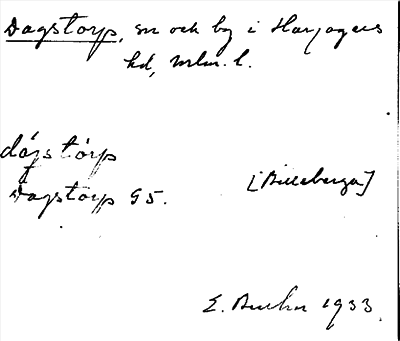 Dagstorp, sn och by i Harjagers
hd, Mlm. l.
dágstòrp
Dagstorp G5.
[Billeberga]
E. 1933.